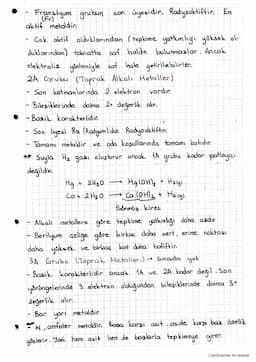 - Fransiyum grubun son üyesidir. Radyoaktiftir. En
(Fr)
aktif metaldir.
- Çok aktif olduklarından (tepkime yatkınlığı yüksek ol-
duklarından) tabiatta saf halde bulunmazlar. Ancak
elektroliz yöntemiyle saf hale getirilebilirler.
2A Grubu (Toprak Alkali Metaller)
- Son katmanlarında 2 elektron vardır.
- Bileşiklerinde daima 2+ değerlik alır.
- Bazik karakterlidir.
- Son üyesi Ra (Radyum)'dur. Radyoaktiftir.
- Tamamı metaldir ve oda koşullarında tamamı katıdır.
* Suyla H₂ gazı oluşturur ancak 1A grubu kadar patlayıcı
değildir.
Mg + 2H₂O → Mg(OH)₂ + H₂(g)
Ca + 2H₂O → Ca(OH)₂ + H₂(g)
Sönmüş kireç
- Alkali metallere göre tepkime yatkınlığı daha azdır.
- Berilyum çeliğe göre birkaç kat daha sert, erime noktası
daha yüksek ve birkaç kat daha hafiftir.
3A Grubu (Toprak Metalleri) → Sınavda yok
- Bazik karakterlidir ancak 1A ve 2A kadar değil. Son
yörüngelerinde 3 elektron olduğundan bileşiklerinde daima 3+
değerlik alır.
- Bor yarı metaldir.
amfoter metaldir. Baza karşı asit, aside karşı baz özelliği
gösterir. Yani hem asit hem de bazlarla tepkimeye girer.
CamScanner ile tarandı